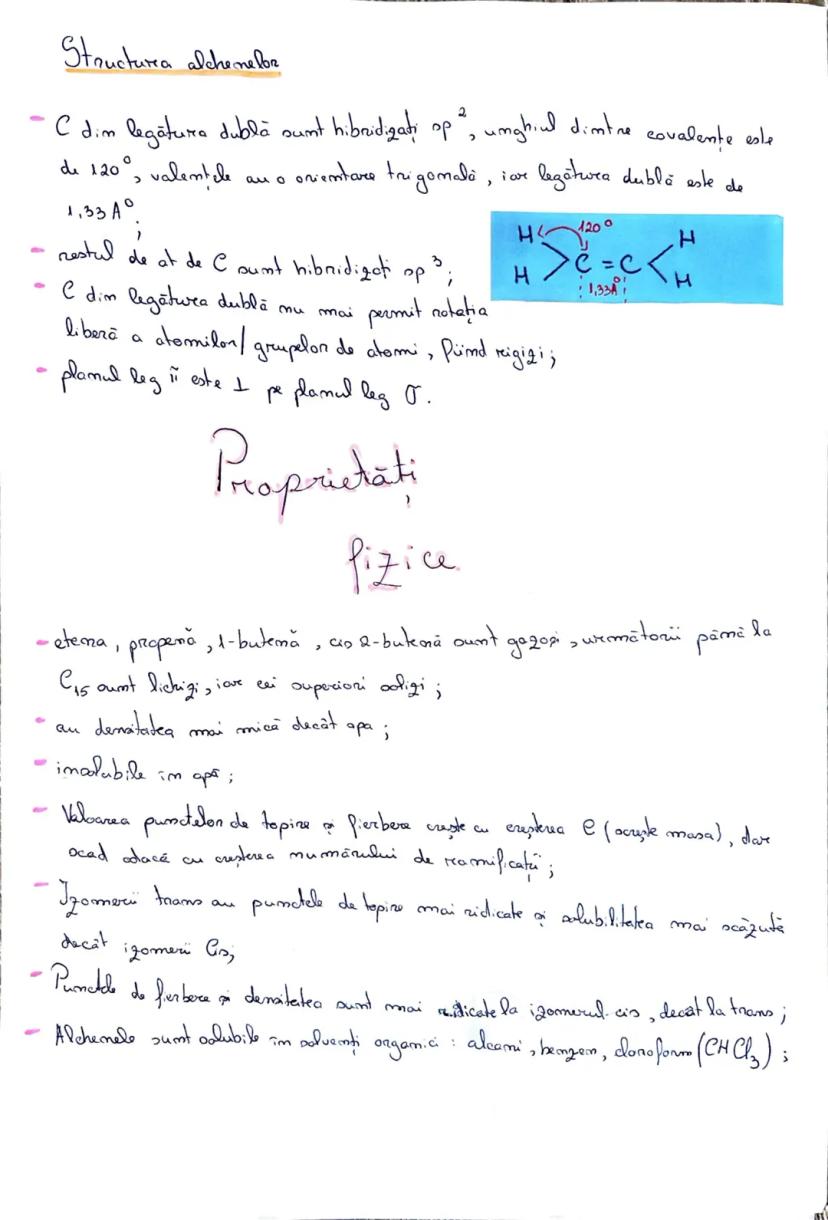 Structura alchenelor
- C din legătura dublă sunt hibridizați sp², unghiul dintre covalențe este
de 120°, valențele au o orientare trigonală, iar legătura dublă este de
1,33 A°;
- restul de at de C sunt hibridizați sp³;
- C din legătura dublă nu mai permit rotația
liberă a atomilor/grupelor de atomi, fiind rigizi;
- planul leg π este ⊥ pe planul leg σ.
H 120° H
C = C
H 1,33A° H
Proprietăți
fizice
- etena, propenă, 1-butenă, cis 2-butenă sunt gazosi, următorii până la
C₁₅ sunt lichizi, iar cei superiori solizi;
- au densitatea mai mică decât apa;
- insolubile în apă;
- Valoarea punctelor de topire și fierbere crește cu creșterea C (și crește masa), dar
scad odacă cu creșterea numărului de ramificații;
- Izomerii trans au punctele de topire mai ridicate și solubilitatea mai scăzută
decât izomerii Cis;
- Punctele de fierbere și densitatea sunt mai ridicate la izomerul cis, decât la trans;
- Alchenele sunt solubile în solvenți organici: alcani, benzen, cloroform (CHCl₃);